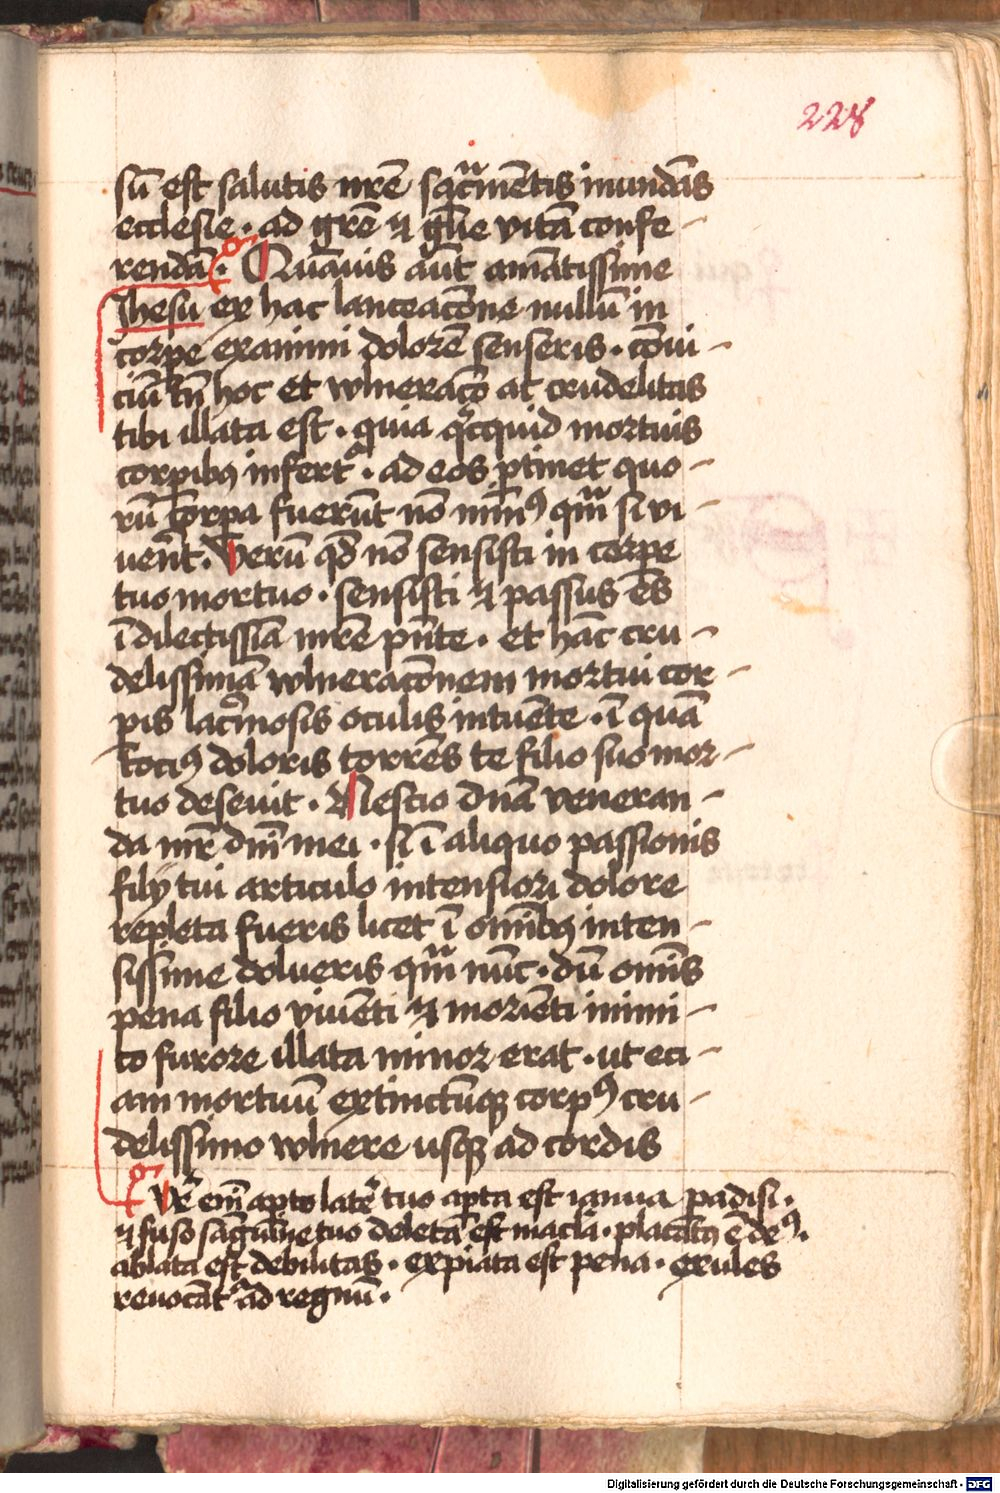 228
sū est salutis nrē sacͣmētis mundās
ecclesie · ad grē ⁊ gͣlie vitā confe-
rendā · Quāuis aūt amātissime
Jhesu ex hac lanceacōne nullū in
corpe exanimi dolorē senseris · cōui-
ciū tn̄ hoc et wlneracō ac crudelitas
tibi illata est · quia qͥcquid mortuis
corpibꝫ infertᷣ · ad eos ꝑtinet quo-
rū corpa fuerūt nō minꝰ qm̄ si vi-
uerēt · Verū qd̄ nō sensisti in corpe
tuo mortuo · sensisti ⁊ passus es
ī dilectissīa mr̄e pn̄te · et hāc cru-
delissimā wlneracōnem mortui cor-
pis lacͥmosis oculis intuēte · ī quā
tociꝰ doloris torrēs te filio suo mor-
tuo deseuit · Nescio dn̄a veneran-
da mr̄ dn̄i mei · si ī aliquo passionis
filÿ tui articulo intensiori dolore
repleta fueris licet ī om̄ibꝫ inten-
sissime dolueris qm̄ nūc · dū om̄is
pena filio viuēti ⁊ moriēti inimi-
co furore illata minor erat · ut eci-
am mortuū extinctūqꝫ corpꝰ cru-
delissimo wlnere usqꝫ ad cordis
em̄ apto latē tuo apta est ianua padisi ·
⁊ fuso sāguīe tuo deleta est macla · placatꝰ ē deꝰ ·
ablata est debilitas · expiata est pena · exules
reuocātᷣ ad regnū ·
Digitalisierung gefördert durch die Deutsche Forschungsgemeinschaft - DFG